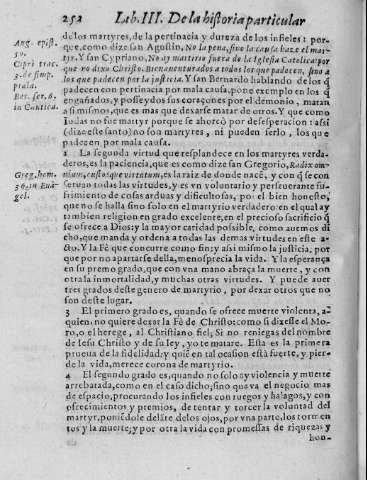 252 Lib. III. De la historia particular
de los martyres, de la pertinacia y dureza de los infieles: por-
que, como dize san Agustin, No la pena, sino la causa haze el mar-
tyr. Y san Cypriano, No ay martirio fuera de la Iglesia Catolica: por
que no dixo Christo, Bienaventurados a todos los que padecen, sino a
los que padecen por la justicia. Y san Bernardo hablando de los q̃
padecen con pertinacia por mala causa, pone exemplo en los q̃
engañados, y posseydos sus coraçones por el demonio, matan
a si mismos, que es mas que dexarse matar de otros. Y que como
Iudas no fue martyr porque se ahorcò por desesperacion: assi
(dize este santo) no son martyres, ni pueden serlo, los que
padecen por mala causa.
2 La segunda virtud que resplandece en los martyres verda-
deros, es la paciencia, que es como dize san Gregorio, Radix om-
nium, custosque virtutum, es la raiz de donde nacẽ, y con q̃ se con
seruan todas las virtudes, y es vn voluntario y perseuerante su-
frimiento de cosas arduas y dificultosas, por el bien honesto,
que no se halla sino solo en el martyrio verdadero: en el qual ay
tambien religion en grado excelente, en el precioso sacrificio q̃
se ofrece a Dios: y la mayor caridad possible, como auemos di
cho, que manda y ordena a todas las demas virtudes en este a-
cto. Y la Fè que concurre como fin: y assi mismo la justicia, por
que por no apartarse della, menosprecia la vida. Y la esperança
en su premo grado, que con vna mano abraça la muerte, y con
otra la inmortalidad, y muchas otras virtudes. Y puede auer
tres grados deste genero de martyrio, por dexar otros que no
son deste lugar.
3 El primero grado es, quando se ofrece muerte violenta, a
quien no quiere dexar la Fè de Christo: como si dizesse el Mo-
ro, o el herege, al Christiano fiel, Si no reniegas del nombre
de Iesu Christo y de su ley, yo te matare. Esta es la primera
prueua de la fidelidad: y quiẽ en tal ocasion està fuerte, y pier-
de la vida, merece corona de martyrio.
4 El segundo grado es, quando no solo ay violencia y muerte
arrebatada, como en el caso dicho; sino que va el negocio mas
de espacio, procurando los infieles con ruegos y halagos, y con
ofrecimientos y premios, de tentar y torcer la voluntad del
martyr, poniẽdole delãte delos ojos, por vna parte, los tormen
tos y la muerte; y por otra la vida con promessas de riquezas y
hon-
Ang. epist.
50.
Cipri. trac.
3. de simp.
prala.
Ber. ser. 6.
in Cantica.
Greg. hom.
36. in Euã
gel.